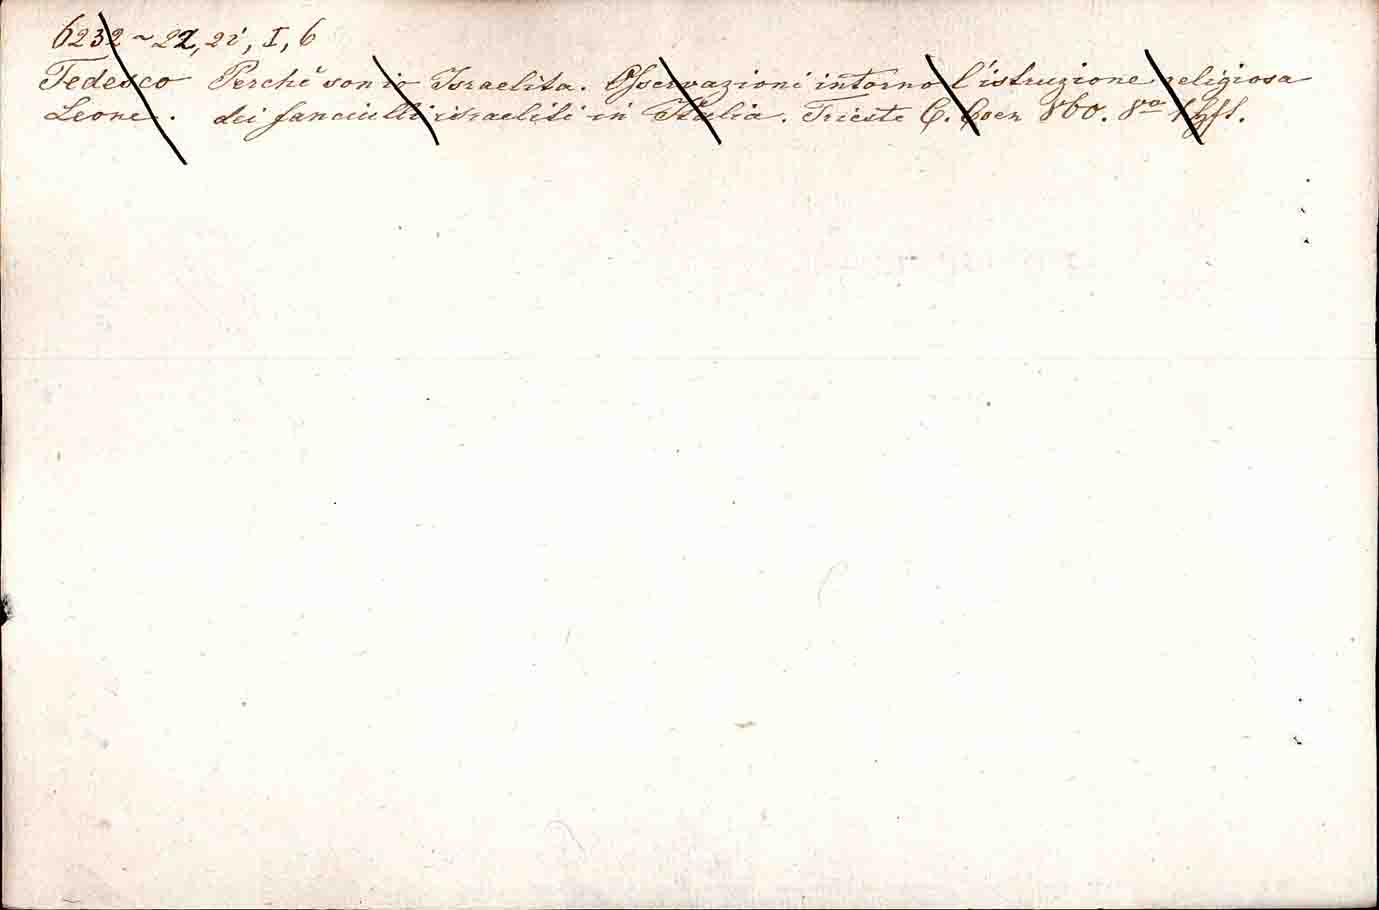 6232 ~ 22, 2i, I, 6
Tedesco Perchè son io Israelita. Osservazioni intorno l'istruzione religiosa
Leone. dei fanciulli israeliti in Italia. Trieste C. Coen 860. 8vo 1 Hft.